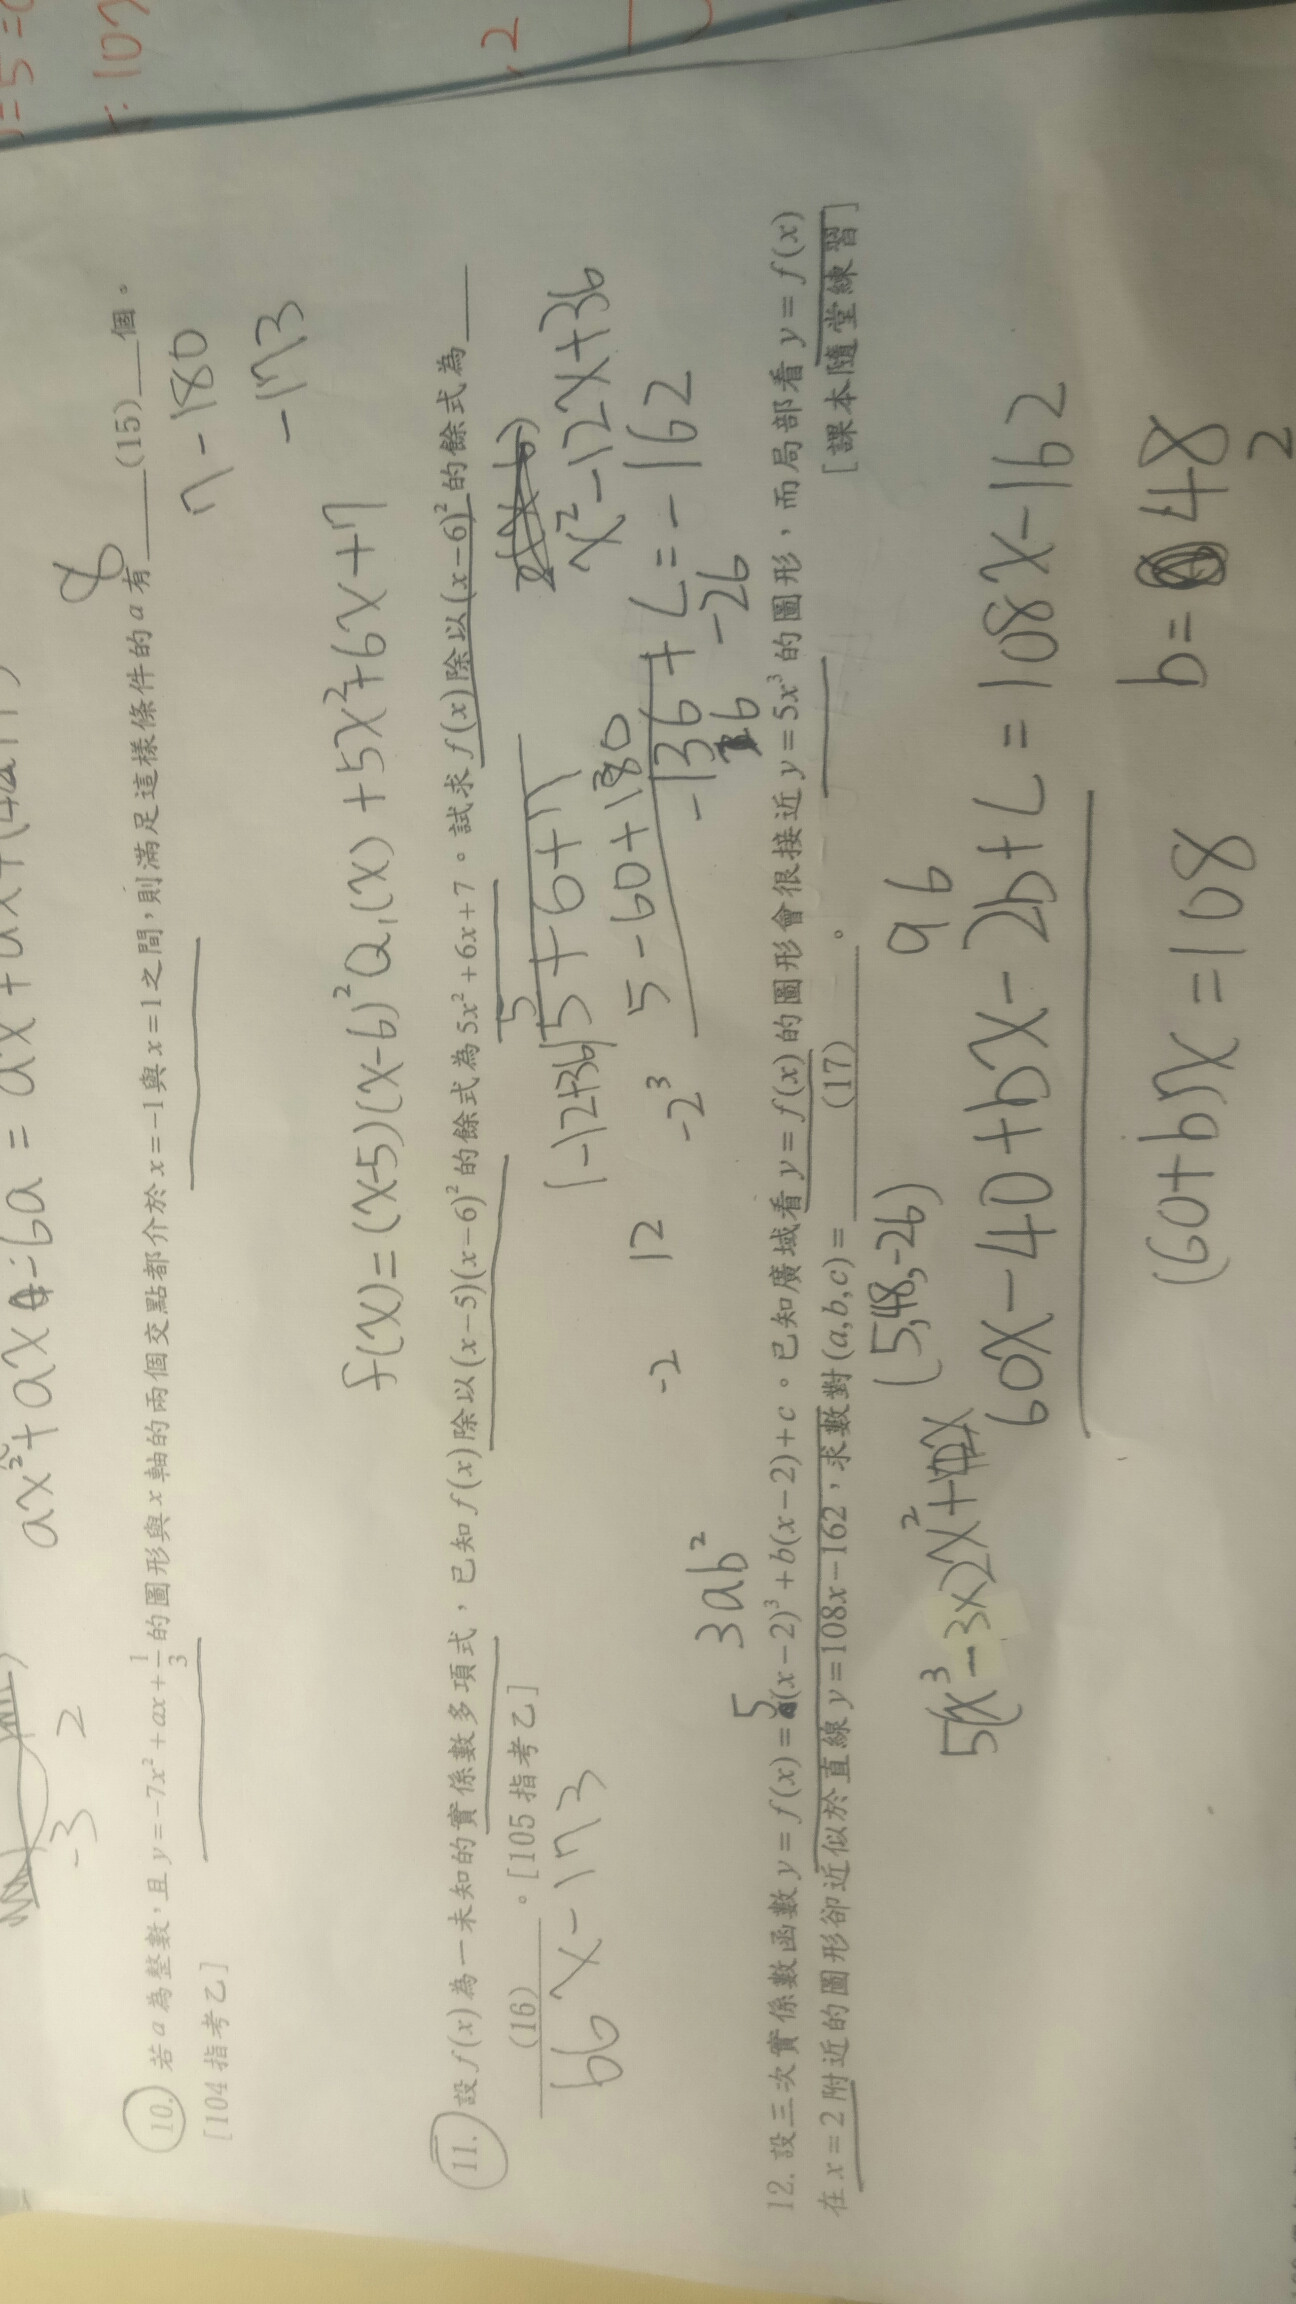 ax²+ax-6a = ax+
-3 2
8
10. 若a為整數,且y=-7x²+ax+1/3的圖形與x軸的兩個交點都介於x=-1與x=1之間,則滿足這樣條件的a有____(15)__個。
[104指考乙]
7-180
-173
f(x)=(x-5)(x-6)²Q₁(x)+5x²+6x+7
11. 設f(x)為一未知的實係數多項式,已知f(x)除以(x-5)(x-6)²的餘式為5x²+6x+7。試求f(x)除以(x-6)²的餘式為__
____(16)____。[105指考乙]
66x-173
5
1-12+36|5+6+7
5-60+180
x²-12x+36
-2 12 -2³
-136+C=-162
-26
3ab²
5
12. 設三次實係數函數y=f(x)=a(x-2)³+b(x-2)+c。已知廣域看y=f(x)的圖形會很接近y=5x³的圖形,而局部看y=f(x)
在x=2附近的圖形卻近似於直線y=108x-162,求數對(a,b,c)=____(17)____。
[課本隨堂練習]
(5,48,-26)
96
5(x³-3x)2x²+
60x-40+bx-2b+C=108x-162
(60+b)x=108
b=48
2